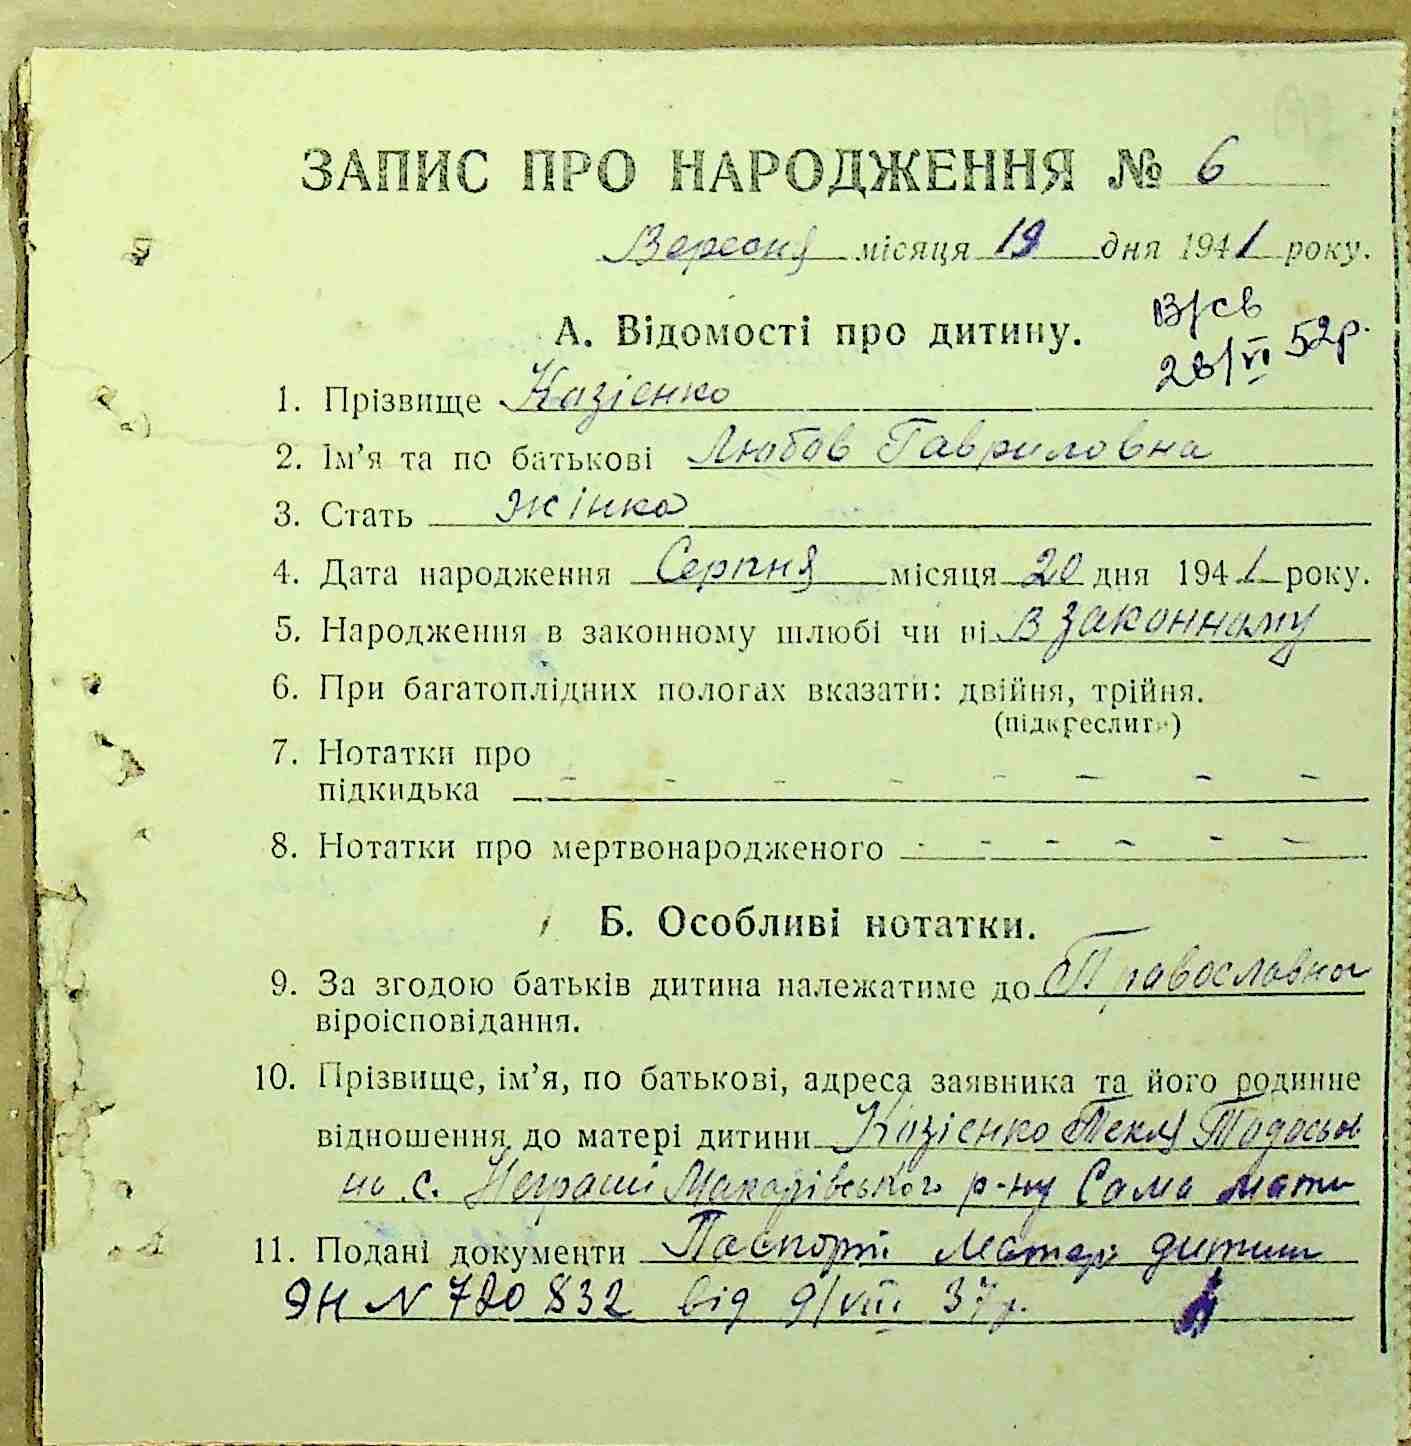 ЗАПИС ПРО НАРОДЖЕННЯ № 6
Вересня місяця 19 дня 1941 року.
В/св
26/VI 52р.
А. Відомості про дитину.
1. Прізвище Казієнко
2. Ім’я та по батькові Любов Гавриловна
3. Стать жінка
4. Дата народження Серпня місяця 20 дня 1941 року.
5. Народження в законному шлюбі чи ні в законному
6. При багатоплідних пологах вказати: двійня, трійня.
(підкреслити)
7. Нотатки про
підкидька - - - - - - - -
8. Нотатки про мертвонародженого - - - - - -
Б. Особливі нотатки.
9. За згодою батьків дитина належатиме до Православна
віроісповідання.
10. Прізвище, ім’я, по батькові, адреса заявника та його родинне
відношення до матері дитини Казієнко Текля Тодосьов
на с. Неграші Макарівського р-ну Сама мати
11. Подані документи Паспорт матері дитини
ЯН N 720832 від 9/VIII 37р.